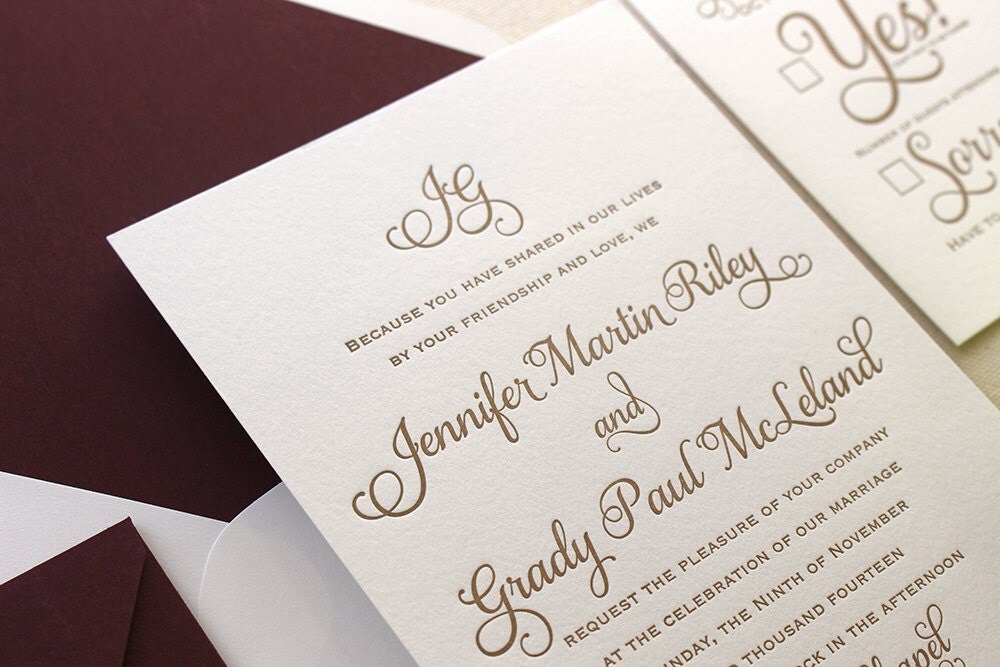 JG
BECAUSE YOU HAVE SHARED IN OUR LIVES
BY YOUR FRIENDSHIP AND LOVE, WE
Jennifer Martin Riley
and
Grady Paul McLeland
REQUEST THE PLEASURE OF YOUR COMPANY
AT THE CELEBRATION OF OUR MARRIAGE
THE NINTH OF NOVEMBER
THOUSAND FOURTEEN
IN THE AFTERNOON
Yes!
NUMBER OF GUESTS
HAVE TO